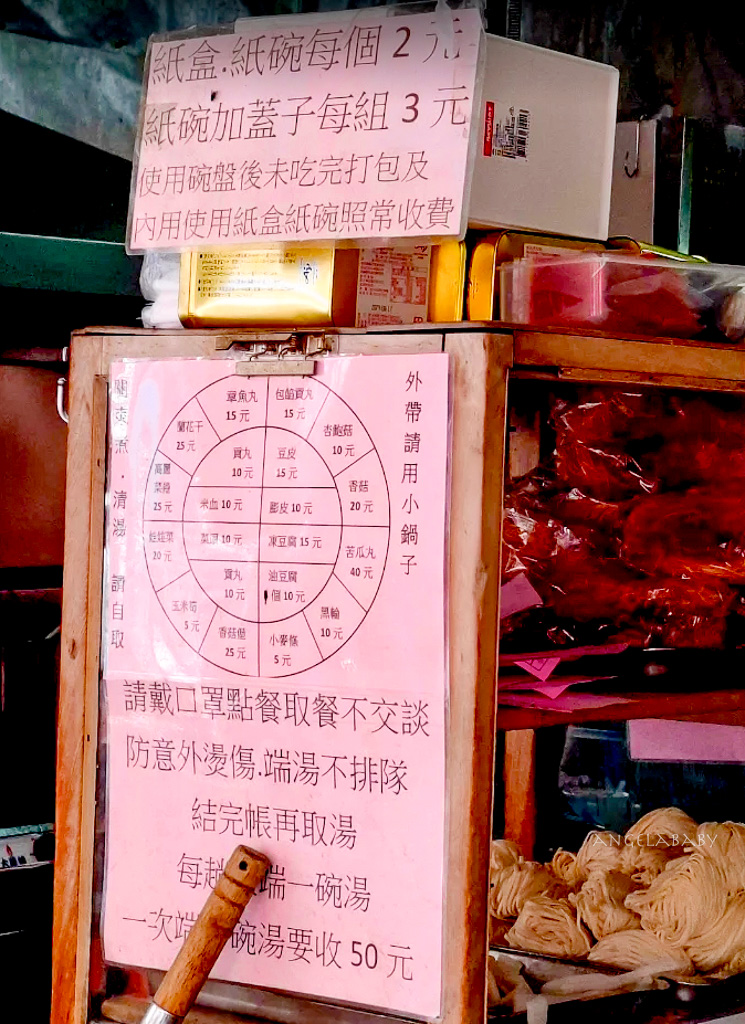 紙盒.紙碗每個 2 元
紙碗加蓋子每組 3 元
使用碗盤後未吃完打包及
內用使用紙盒紙碗照常收費
外帶請用小鍋子
關東煮.清湯 請自取
章魚丸
15 元
包餡貢丸
15 元
杏鮑菇
10 元
香菇
20 元
苦瓜丸
40 元
黑輪
10 元
小麥條
5 元
香菇
25 元
玉米筍
5 元
娃娃菜
20 元
高麗
菜捲
25 元
蘭花干
25 元
貢丸
10 元
豆皮
15 元
米血 10 元
10 元
菜頭 10 元
凍豆腐 15 元
貢丸
10 元
油豆腐
個 10 元
請戴口罩點餐取餐不交談
防意外燙傷.端湯不排隊
結完帳再取湯
每趟 端一碗湯
一次端 碗湯要收 50 元
ANGELABABY